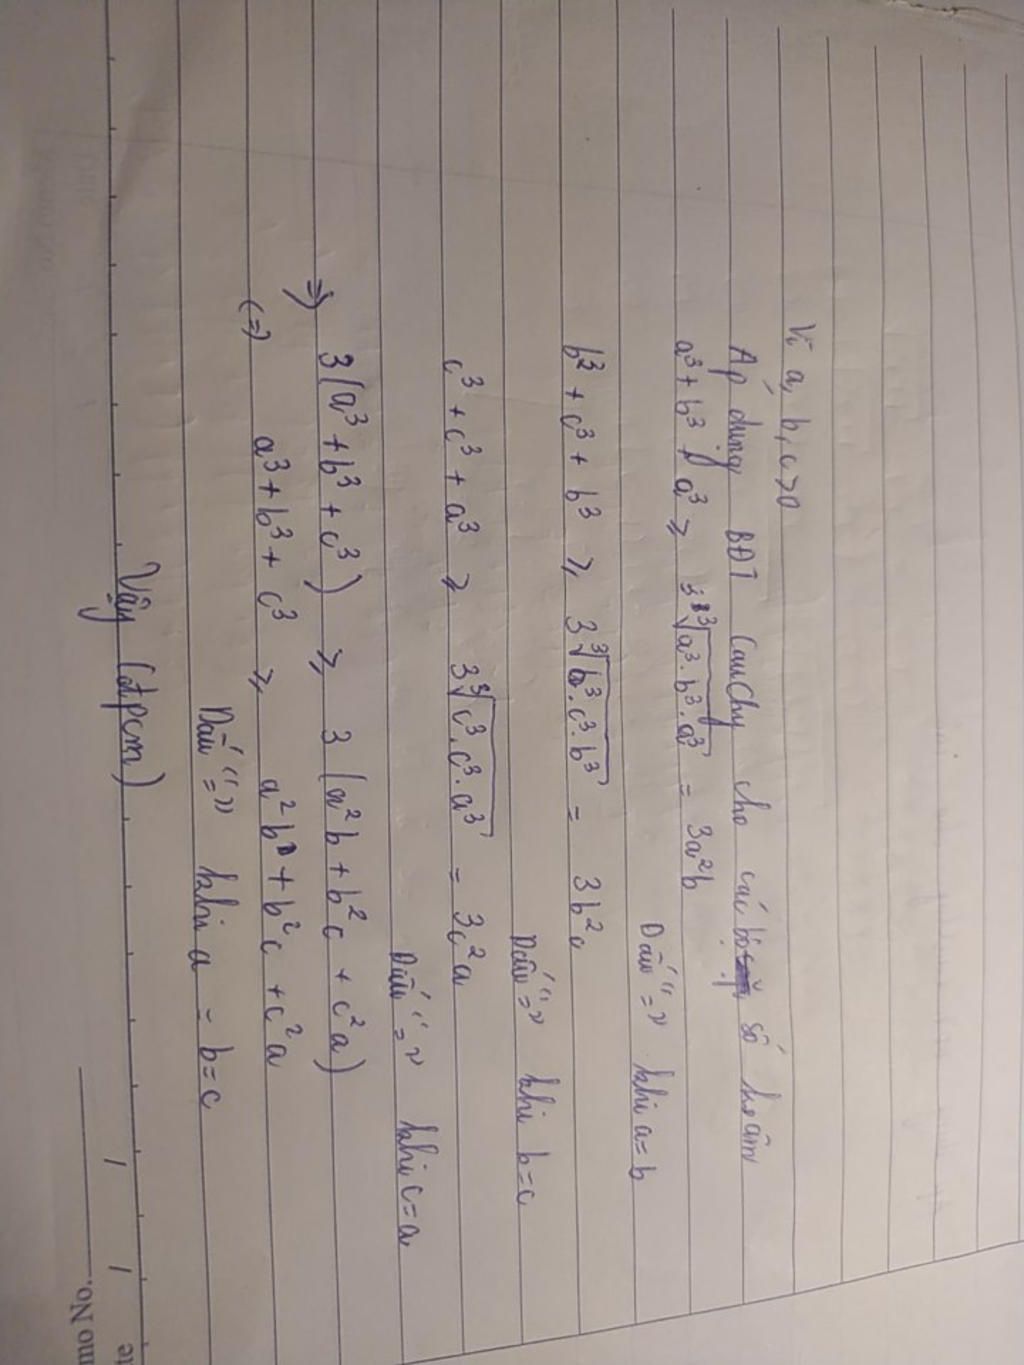 Vì a, b, c > 0
Áp dụng BĐT Cauchy cho các bộ số k âm
a³ + b³ + a³ ≥ 3∛(a³.b³.a³) = 3a²b
Dấu "=" khi a = b
b³ + c³ + b³ ≥ 3∛(b³.c³.b³) = 3b²c
Dấu "=" khi b = c
c³ + c³ + a³ ≥ 3∛(c³.c³.a³) = 3c²a
Dấu "=" khi c = a
=> 3(a³ + b³ + c³) ≥ 3(a²b + b²c + c²a)
(=) a³ + b³ + c³ ≥ a²b + b²c + c²a
Dấu "=" khi a = b = c
Vậy (đpcm)
/ /
mo No.
te